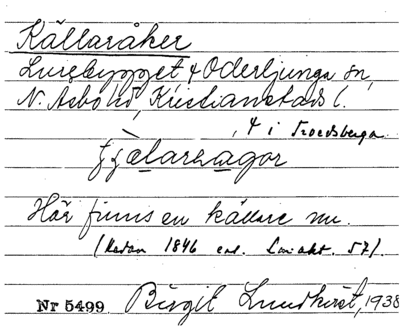 Källaråker
Lursbygget, 4 Oderljunga sn,
N. Åsbo hd, Kristianstads l.
, 4 i Troedsberga
Här finns en källare nu.
(Redan 1846 enl. Lm akt. 57).
Nr 5499 Birgit Lundkvist, 1938